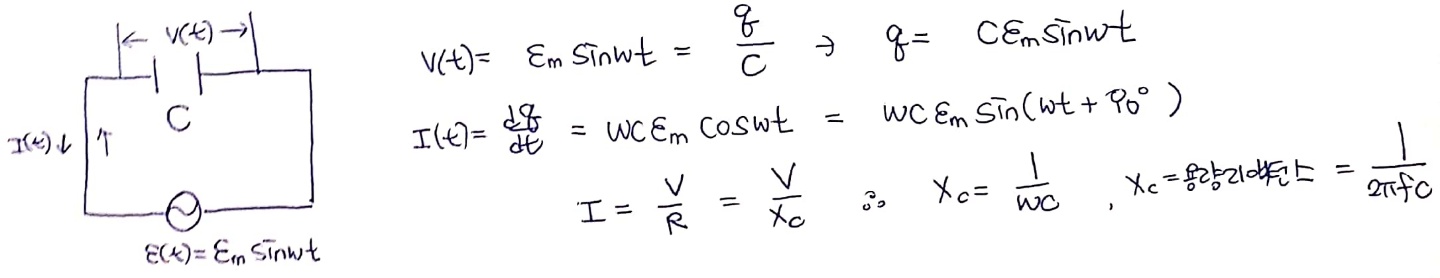 |← V(t) →|
C
I(t)↓ ↑
ε(t)= εm sinwt
V(t)= εm sinwt = q/C → q= Cεm sinwt
I(t)= dq/dt = wCεm coswt = wCεm sin(wt+90°)
I = V/R = V/Xc ∴ Xc= 1/wC , Xc=용량리액턴스 = 1/2πfC